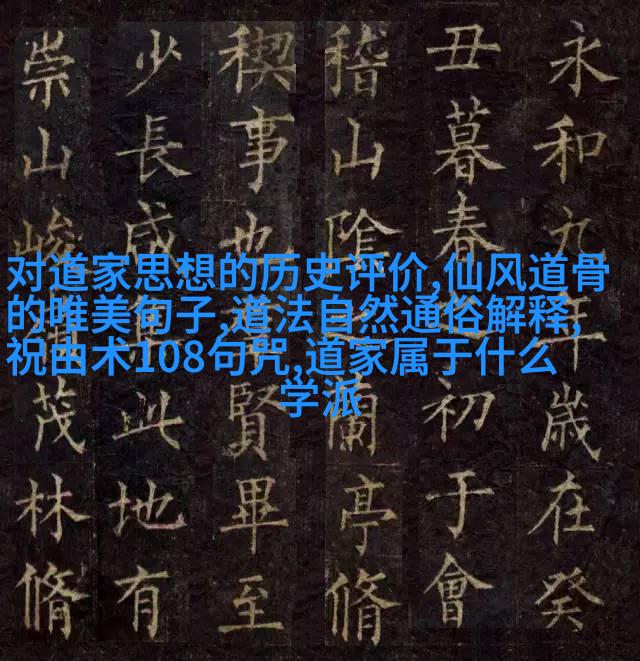 对道家思想的历史评价,仙风道骨
的唯美句子,道法自然通俗解释,
祝由术108句咒,道家属于什么
学派
永和九年歲在癸
丑暮春初于會
稽山陰蘭亭脩
禊事也賢畢至
少長咸此地有
崇山峻茂林脩